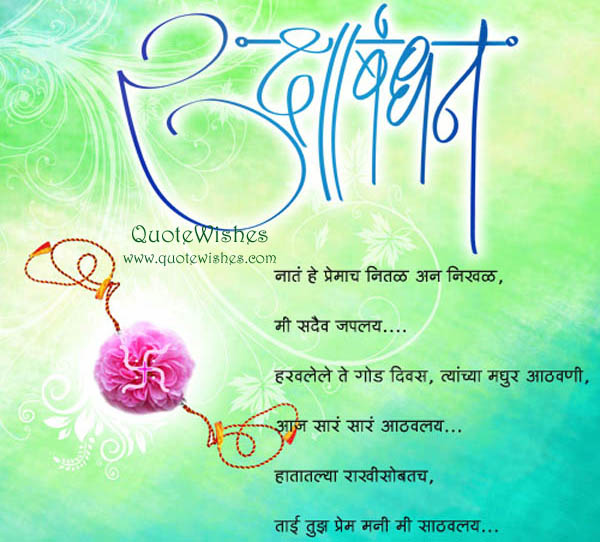 रक्षाबंधन
QuoteWishes
www.quotewishes.com
नातं हे प्रेमाच नितळ अन निखळ,
मी सदैव जपलय....
हरवलेले ते गोड दिवस, त्यांच्या मधुर आठवणी,
आज सारं सारं आठवलय...
हातातल्या राखीसोबतच,
ताई तुझ प्रेम मनी मी साठवलय...